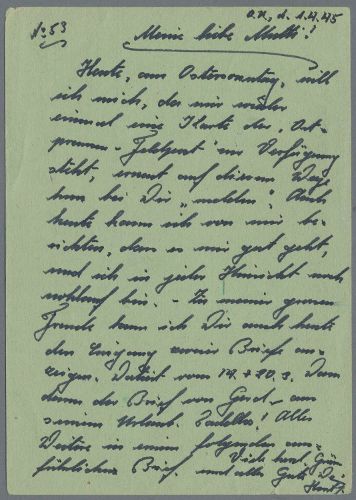 O.U., d. 1.4.45
No 53
Meine liebe Mutti!
Heute, am Ostersonntag, will
ich mich, da mir wieder
einmal eine Karte der "Ost-
preussen-Feldpost" zur Verfügung
steht, erneut auf diesem Wege
kurz bei Dir "melden". Auch
heute kann ich von mir be-
richten, dass es mir gut geht,
und ich in jeder Hinsicht noch
wohlauf bin. - Zu meiner grossen
Freude kann ich Dir auch heute
den Eingang zweier Briefe an-
zeigen. Datiert vom 17. + 20.3. Dazu
kam der Brief von Gerd - aus
seinem Urlaub. Tadellos! Alles
Weitere in einem folgenden aus-
führlichen Brief.
Viele herzl. Grüsse
und alles Gute Dein
Horst